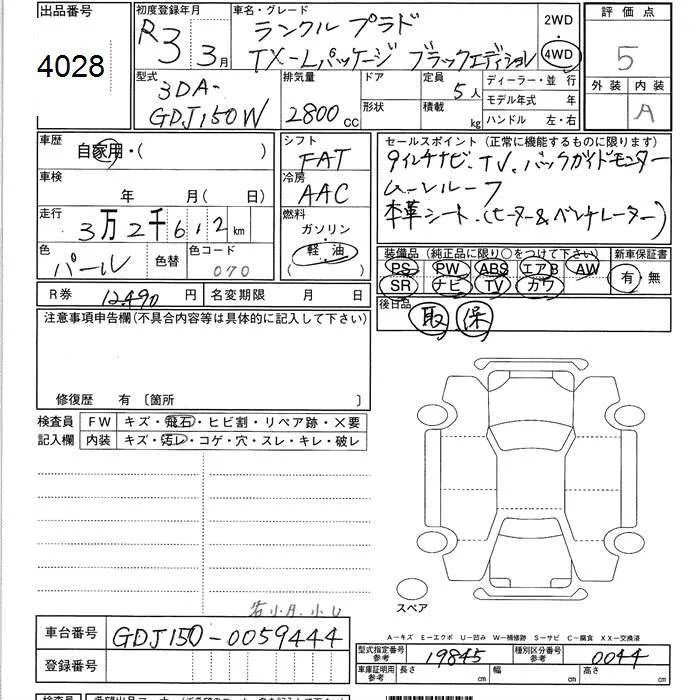 出品番号
4028
初度登録年月
R3 3月
車名・グレード
ランクル プラド
TX-Lパッケージ ブラックエディション
2WD
・
4WD
評価点
5
外装 内装
A
型式
3DA-
GDJ150W
排気量
2800cc
ドア
形状
定員
5人
積載
kg
ディーラー・並行
モデル年式 年
ハンドル 左・右
車歴
自家用・( )
車検
年 月( 日)
走行
3万2千612km
色
パール
色替
色コード
070
シフト
FAT
冷房
AAC
燃料
ガソリン
軽・油
( )
セールスポイント(正常に機能するものに限ります)
9インチナビ、TV、バックガイドモニター
ムーンルーフ
本革シート・(ヒーター&ベンチレーター)
装備品(純正品に限り○をつけて下さい)
PS PW ABS エアB AW
SR ナビ TV カワ
新車保証書
有・無
後日品
取 保
R券 12490円
名変期限 月 日
注意事項申告欄(不具合内容等は具体的に記入して下さい)
修復歴 有〔箇所 〕
検査員
記入欄
FW キズ・飛石・ヒビ割・リペア跡・×要
内装 キズ・汚レ・コゲ・穴・スレ・キレ・破レ
スペア
A-キズ E-エクボ U-凹み W-補修跡 S-サビ C-腐食 XX-交換済
車台番号
GDJ150-0059444
登録番号
型式指定番号
参考
19845
種別区分番号
参考
0044
車庫証明用
参考
長さ cm
幅 cm
高さ cm